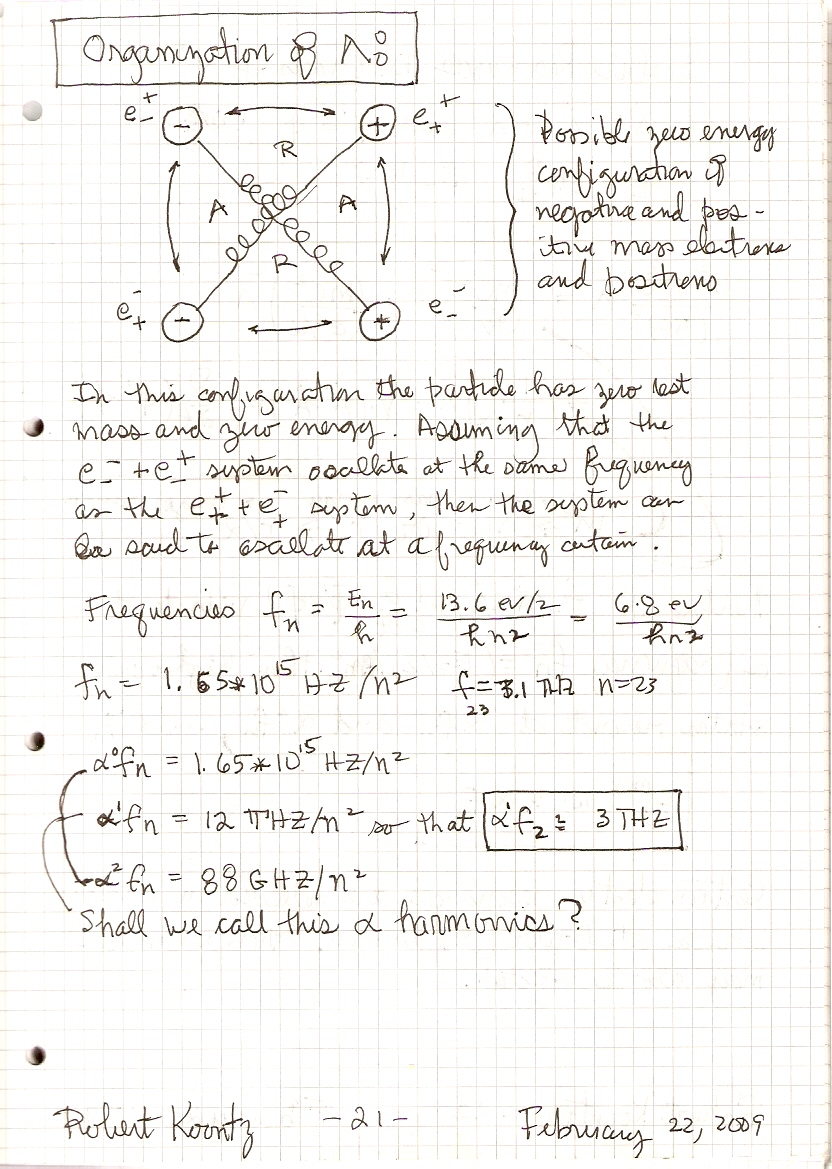 Organization of Λ⁰₀
e₋⁺ − ↔ + e₊⁺
R
A A
R
e₊⁻ − ↔ + e₋⁻
Possible zero energy
configuration of
negative and pos-
itive mass electrons
and positrons
In this configuration the particle has zero rest
mass and zero energy. Assuming that the
e₋⁻ + e₋⁺ system oscillate at the same frequency
as the e₊⁺ + e₊⁻ system, then the system can
be said to oscillate at a frequency certain.
Frequencies fₙ = Eₙ/h = 13.6 ev/2 / hn² = 6.8 ev / hn²
fₙ = 1.65*10¹⁵ HZ/n² f₂₃ = 3.1 THZ n=23
α⁰fₙ = 1.65*10¹⁵ HZ/n²
α¹fₙ = 12 THZ/n² so that α¹f₂ ≅ 3 THZ
α²fₙ = 88 GHZ/n²
Shall we call this α harmonics?
Robert Koontz -21- February 22, 2009